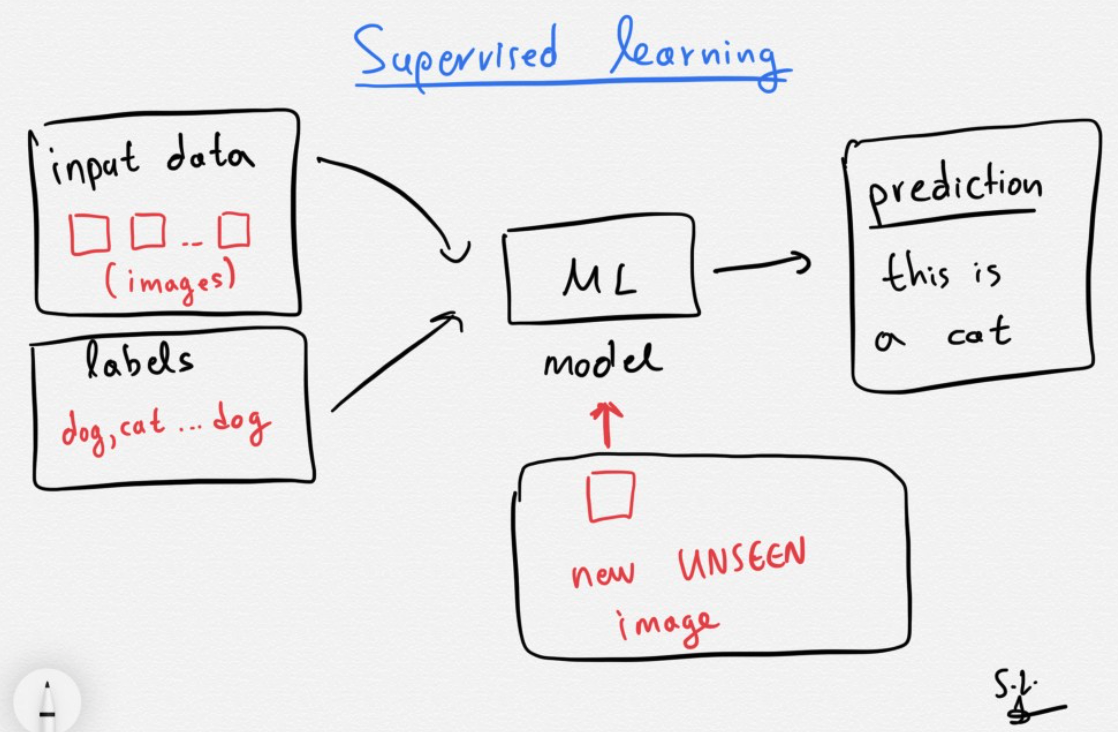 Supervised learning
input data
(images)
labels
dog, cat ... dog
ML
model
prediction
this is
a cat
new UNSEEN
image
S.L.